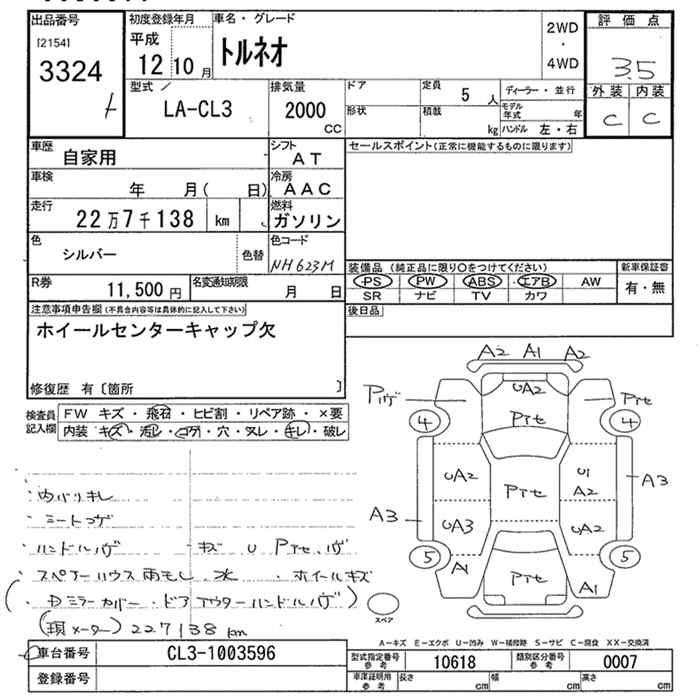 出品番号 初度登録年月 車名・グレード 評価点
[2154] 平成 2WD
3324 12 10月 トルネオ ・ 3.5
4WD
型式 排気量 ドア 定員 5人 ディーラー・並行 外装 内装
LA-CL3 2000 CC 形状 積載 kg モデル年式 年 C C
ハンドル 左・右
車歴 自家用 シフト AT セールスポイント(正常に機能するものに限ります)
車検 年 月( 日) 冷房 AAC
走行 22万7千138 km 燃料 ガソリン
色 シルバー 色替 色コード NH623M
装備品 (純正品に限り○をつけてください) 新車保証書
R券 11,500円 名変通知期限 月 日 PS PW ABS エアB AW 有・無
SR ナビ TV カワ
注意事項申告欄(不具合内容等は具体的に記入して下さい) 後日品
ホイールセンターキャップ欠
修復歴 有〔箇所 〕
検査員 FW キズ・飛石・ヒビ割・リペア跡・×要
記入欄 内装 キズ・汚レ・コゲ・穴・スレ・キレ・破レ
A2 A1 A2
Pハゲ UA2 Pアセ
4 Pアセ 4
UA2 Pアセ U1 A2 A3
A3 UA3 UA2
5 A1 Pアセ A1 5
スペア
・内バリキレ
・シートコゲ
・ハンドルハゲ ・キズ U Pアセ、ハゲ
・スペアーハウス雨モレ、水 ・ホイールキズ
(・Dミラーカバー・ドアアウターハンドルハゲ)
(現メーター) 227138 km
A-キズ E-エクボ U-凹み W-補修跡 S-サビ C-腐食 XX-交換済
車台番号 CL3-1003596 型式指定番号 参考 10618 類別区分番号 参考 0007
登録番号 車庫証明用 参考 長さ cm 幅 cm 高さ cm